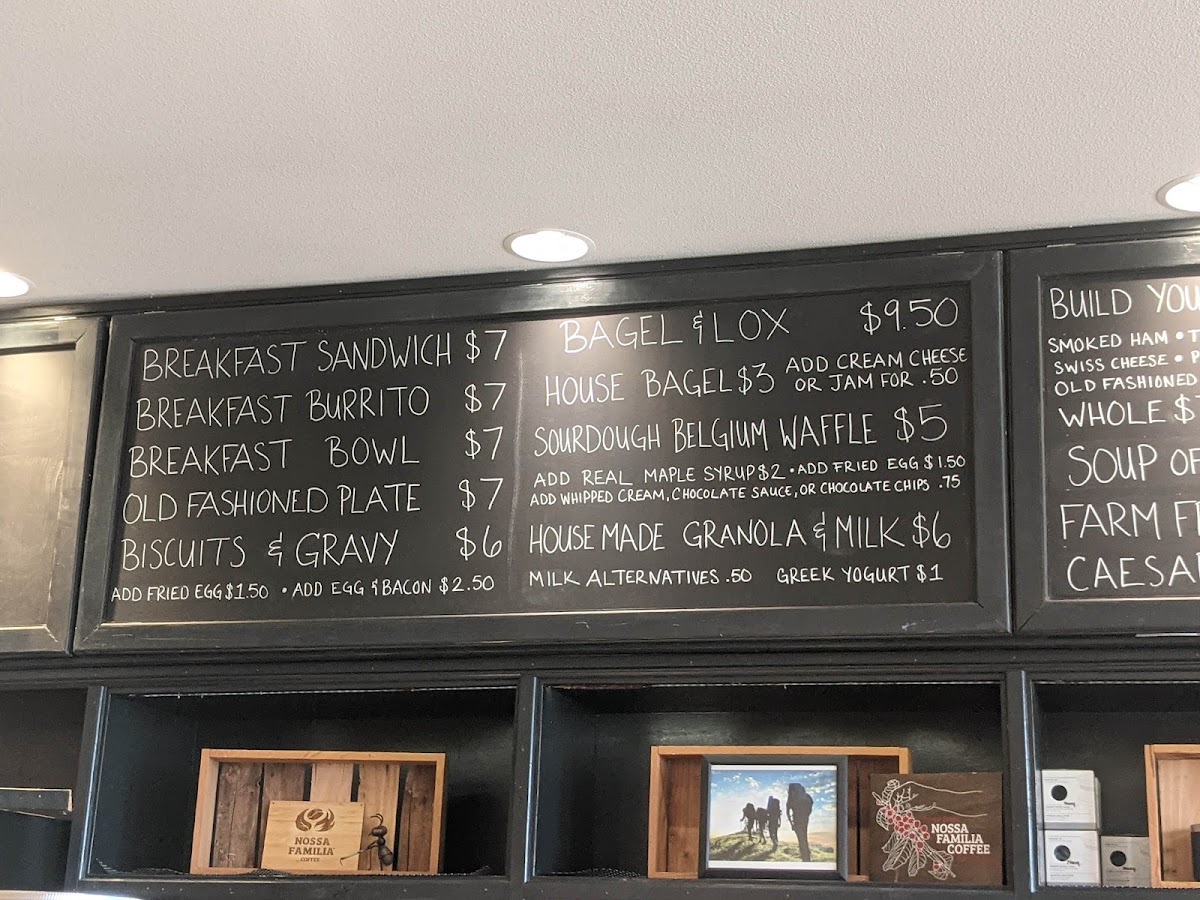 BREAKFAST SANDWICH $7
BREAKFAST BURRITO $7
BREAKFAST BOWL $7
OLD FASHIONED PLATE $7
BISCUITS & GRAVY $6
ADD FRIED EGG $1.50 • ADD EGG & BACON $2.50
BAGEL & LOX $9.50
HOUSE BAGEL $3 ADD CREAM CHEESE
OR JAM FOR .50
SOURDOUGH BELGIUM WAFFLE $5
ADD REAL MAPLE SYRUP $2 • ADD FRIED EGG $1.50
ADD WHIPPED CREAM, CHOCOLATE SAUCE, OR CHOCOLATE CHIPS .75
HOUSE MADE GRANOLA & MILK $6
MILK ALTERNATIVES .50 GREEK YOGURT $1
BUILD YOU
SMOKED HAM •
SWISS CHEESE •
OLD FASHIONED
WHOLE $
SOUP OF
FARM
CAESA
NOSSA
FAMILIA
COFFEE
NOSSA
FAMILIA
COFFEE